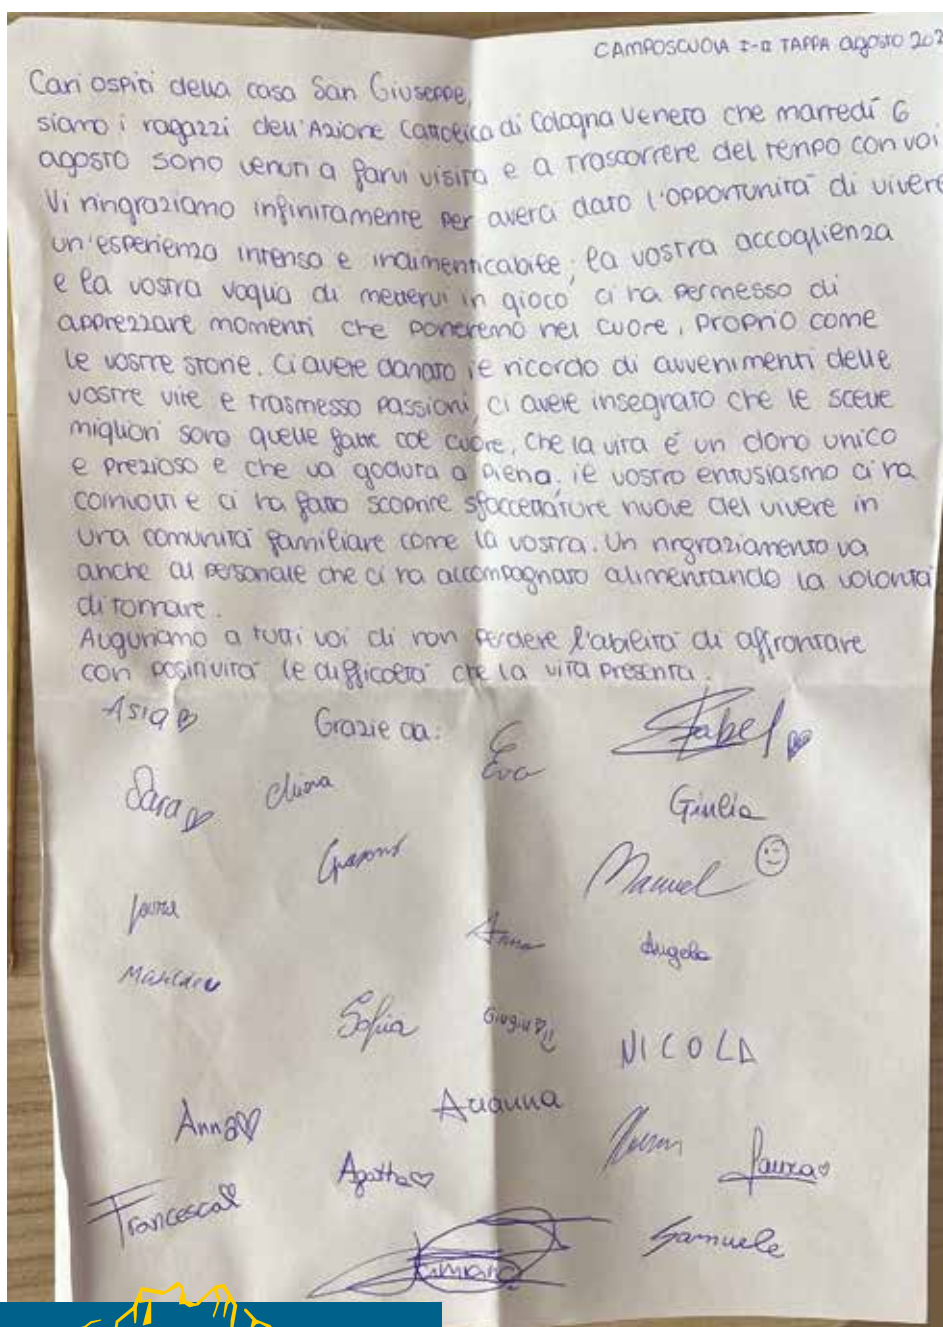 CAMPOSCUOLA I-II TAPPA agosto 202
Cari ospiti della casa San Giuseppe,
siamo i ragazzi dell'Azione Cattolica di Cologna Veneta che martedì 6
agosto sono venuti a farvi visita e a trascorrere del tempo con voi
Vi ringraziamo infinitamente per averci dato l'opportunità di vivere
un'esperienza intensa e indimenticabile; la vostra accoglienza
e la vostra voglia di mettervi in gioco ci ha permesso di
apprezzare momenti che porteremo nel cuore, proprio come
le vostre storie. Ci avete donato il ricordo di avvenimenti delle
vostre vite e trasmesso passioni, ci avete insegnato che le scelte
migliori sono quelle fatte col cuore, che la vita è un dono unico
e prezioso e che va goduta a piena. il vostro entusiasmo ci ha
coinvolti e ci ha fatto scoprire sfaccettature nuove del vivere in
una comunità familiare come la vostra. Un ringraziamento va
anche al personale che ci ha accompagnato alimentando la volontà
di tornare.
Auguriamo a tutti voi di non perdere l'abilità di affrontare
con positività le difficoltà che la vita presenta.
Asia Grazie da: Eva
Sara Chiara Giulia
Manuel
Anna Angela
Sofia Giugiu NICOLA
Anna Arianna
Agatha Laura
Francesca Samuele